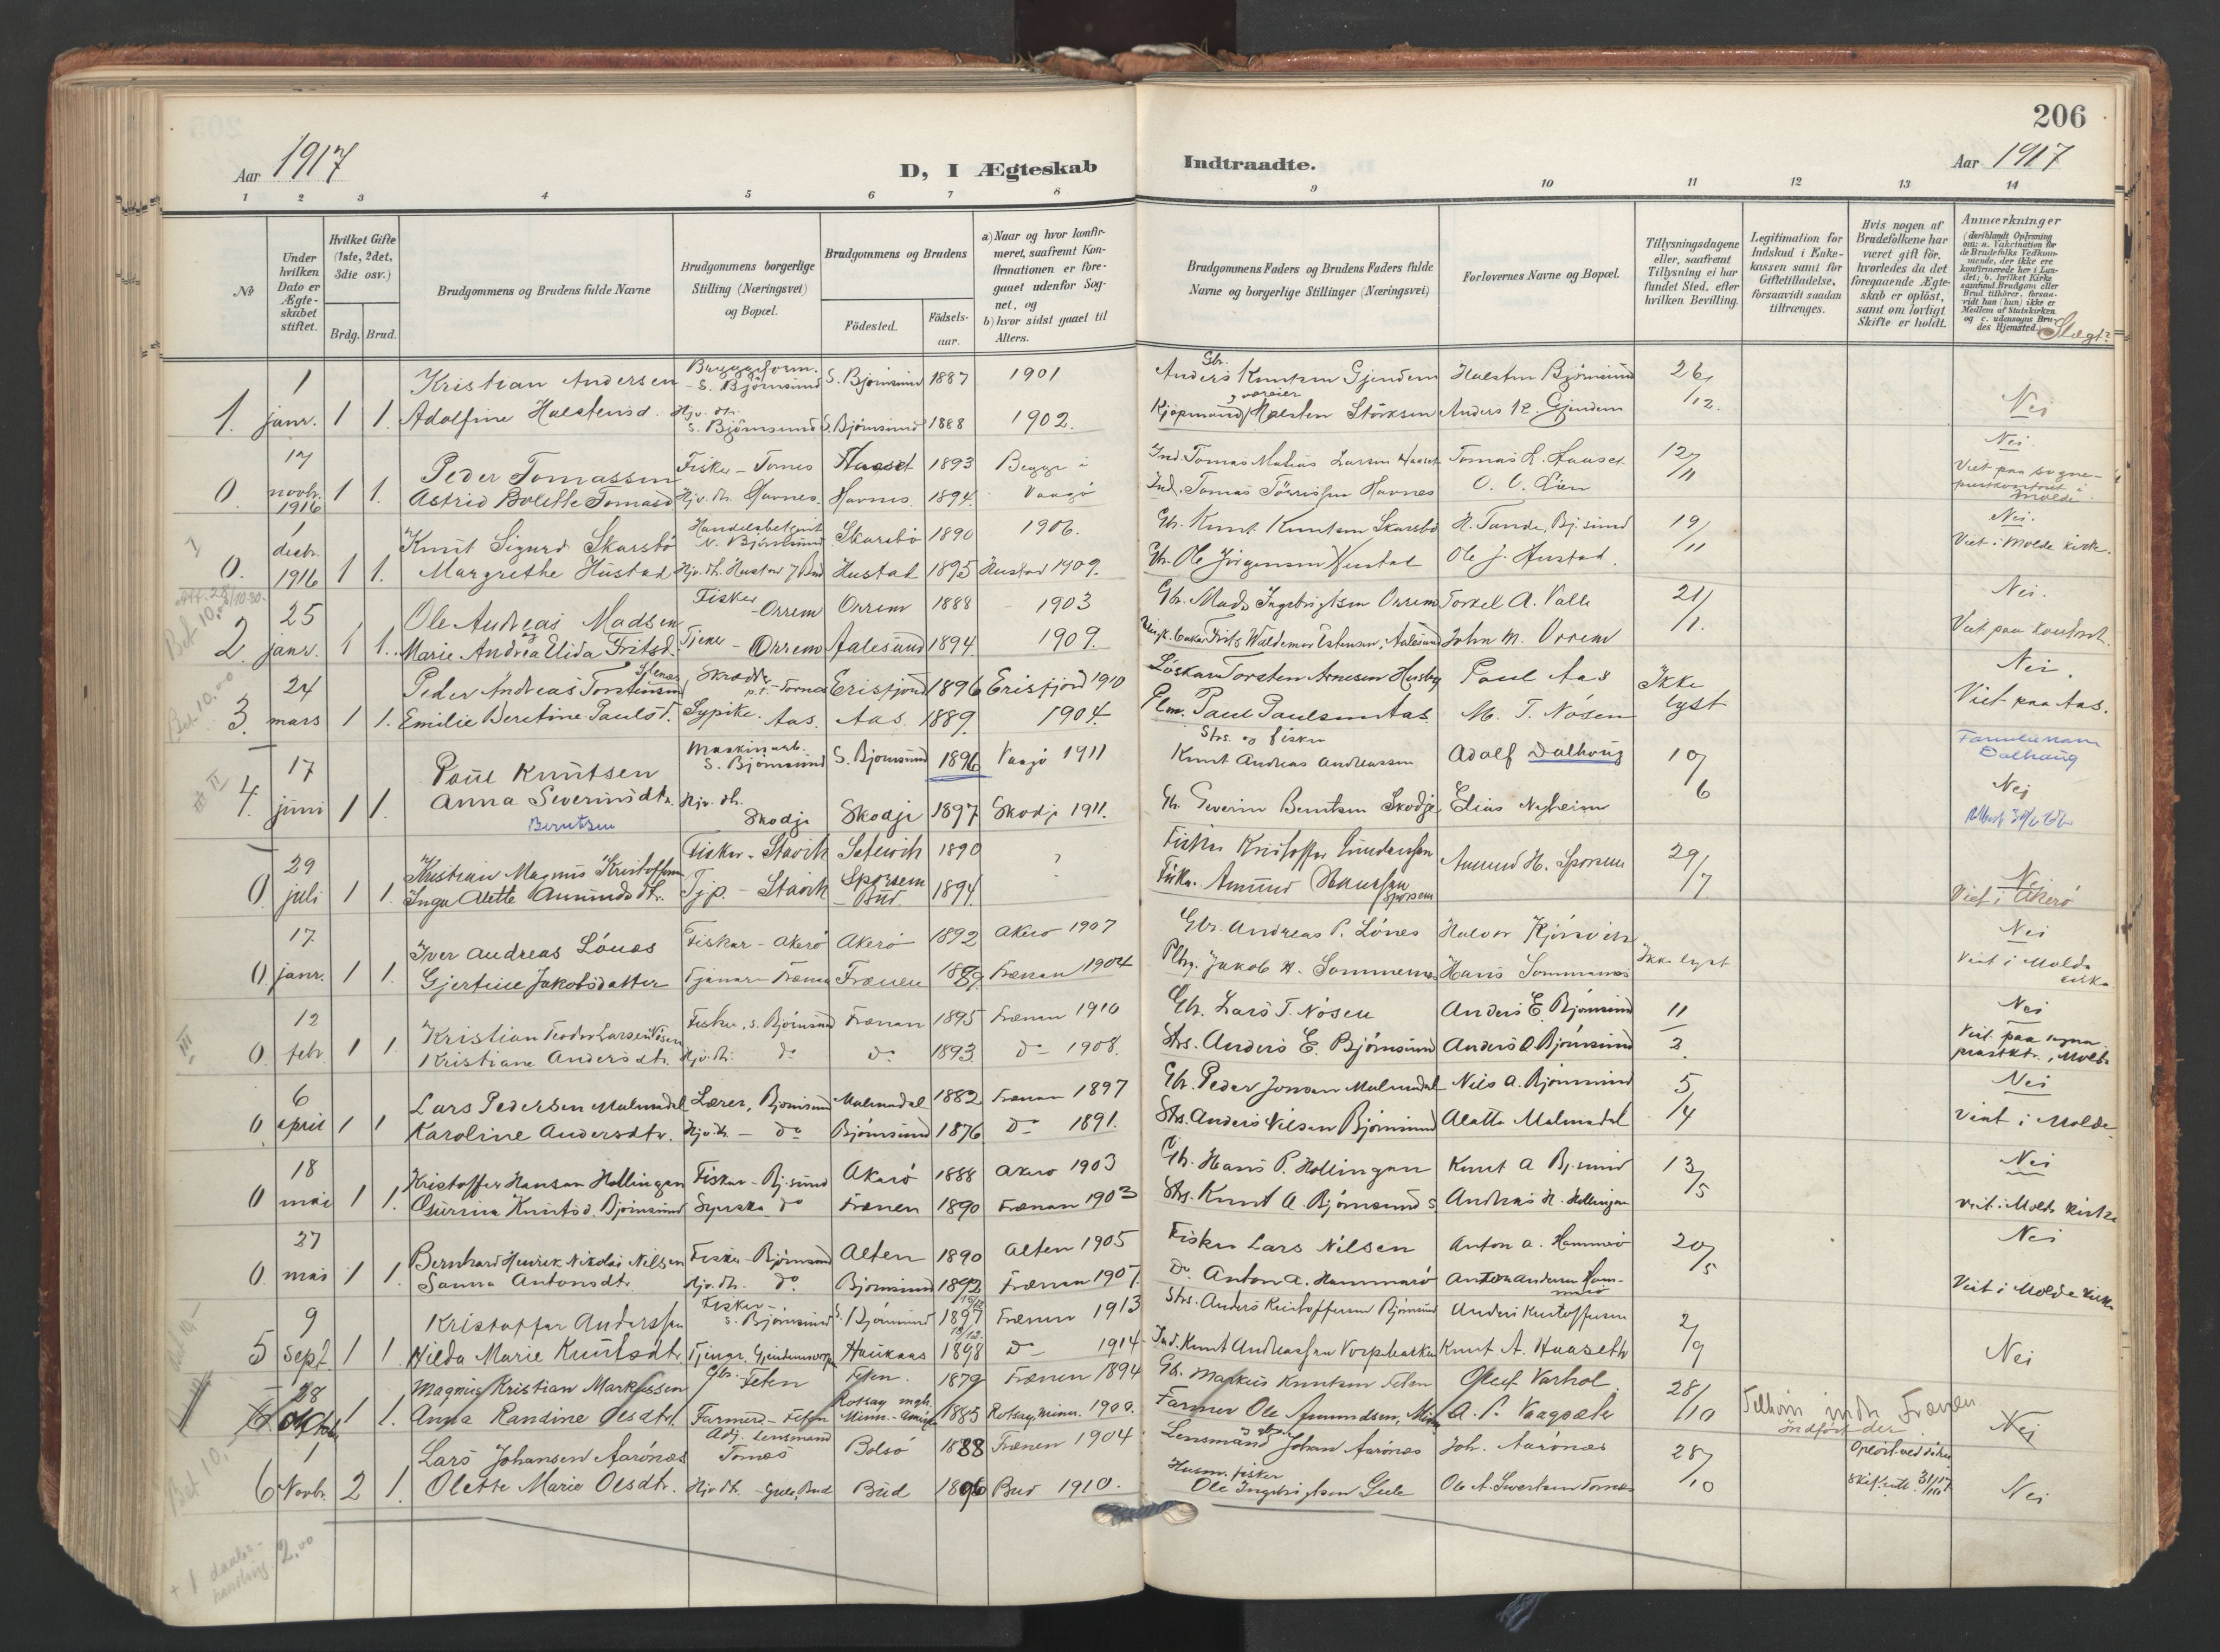 206
Aar 1917
D, I Ægteskab
Indtraadte.
Aar 1917
1 2 3 4 5 6 7 8 9 10 11 12 13 14
No
Under hvilken Dato er Ægteskabet stiftet.
Hvilket Gifte (1ste, 2det, 3die osv.)
Brdg. Brud.
Brudgommens og Brudens fulde Navne
Brudgommens borgerlige Stilling (Næringsvei) og Bopæl.
Brudgommens og Brudens
Födested.
Födselsaar.
a) Naar og hvor konfirmeret, saafremt Konfirmationen er foregaaet udenfor Sognet, og
b) hvor sidst gaaet til Alters.
Brudgommens Faders og Brudens Faders fulde Navne og borgerlige Stillinger (Næringsvei)
Forlovernes Navne og Bopæl.
Tillysningsdagene eller, saafremt Tillysning ei har fundet Sted, efter hvilken Bevilling.
Legitimation for Indskud i Enkekassen samt for Giftetilladelse, forsaavidt saadan tiltrænges.
Hvis nogen af Brudefolkene har været gift för, hvorledes da det foregaaende Ægteskab er oplöst, samt om lovligt Skifte er holdt.
Anmærkninger
Slægt?
1. 1 janr. 1 1.
Kristian Andersen S. Björnsund S. Björnsund 1887 1901
Anders Knutsen Gjendem Halsten Björnsund 26/12.
Adolfine Halstensd. Hjv. dtr. S. Björnsund S. Björnsund 1888 1902.
Kjöpmand Halsten Störksen Anders K. Gjendem Nei
0 17 novbr. 1916 1 1.
Peder Tomassen Fisker - Tornes Haaset 1893 Begge i
Ind. Tomas Matias Larsen Haaset Tomas L. Haaset 12/11 Nei.
Astrid Bolette Tomasd Hjv. dtr. Havnes. Havnes. 1894. Vaagö
Ind. Tomas Törrissen Havnes O. O. Lien Viet paa sogneprestkontoret i Molde
0. 1 decbr. 1916 1 1.
Knut Sigurd Skarsbö Handelsbetjent N. Björnsund Skarsbö 1890 1906.
Gbr. Knut Knutsen Skarsbö H. Tande, Bj.sund 19/11 Nei.
Margrethe Hustad Hjv. dtr. Hustad Bud Hustad 1895 Hustad 1909.
Gbr. Ole Jörgensen Hustad Ole J. Hustad. Viet i Molde kirke.
2. 25 janr. 1 1.
Ole Andreas Madsen Fisker Orrem Orrem 1888 1903
Gbr. Mads Ingebrigtsen Orrem Torkel A. Valle 21/1. Nei.
Marie Andrea Elida Fritsd. Tjener - Orrem Aalesund 1894 1909.
Frits Waldemar Aalesund John M. Orrem Viet paa kontoret.
3. 24 mars 1 1.
Peder Andreas Torstensen Skrædder p.t. Tornes Erisfjord 1896 Erisfjord 1910
Löskar Torsten Arnesen Husby Paul Aas Ikke lyst Nei.
Emilie Beretine Paulsd. Sypike. Aas. Aas. 1889. 1904.
Plm. Paul Paulsen Aas. M. T. Nösen Viet paa Aas.
4. 17 juni 1 1.
Paul Knutsen Maskinarb. S. Björnsund S. Björnsund 1896 Vaagö 1911
Strs. og fisker Knut Andreas Andreassen Adolf Dalhaug 10/6 Familienavn Dalhaug
Anna Severinsdtr. Berntsen Hjv. dtr. Skodje Skodje 1897 Skodje 1911.
Gbr. Severin Berntsen Skodje Elias Nyheim Nej
0 29 juli 1 1.
Kristian Magnus Kristoffersen Fisker - Stavik 1890 ?
Fisker Kristoffer Gundersen Amund H. Sporsem 29/7
Inga Alette Amundsdtr. Tjp. - Stavik Sporsem Bud 1894.
Fisk. Amund Hansen Sporsem Nei Viet i Akerö
0 17 janr. 1 1.
Iver Andreas Lönes Fisker - Akerö Akerö 1892 Akerö 1907
Gbr. Andreas P. Lönes Halvor Kjörsvik Ikke lyst Nei
Gjertine Jakobsdatter Tjener - Frænen Frænen 1889. Frænen 1904
Plbr. Jakob A. Sommernes Hans Sommernes Viet i Molde kirke
0. 12 febr. 1 1.
Kristian Teodor Larsen Nösen Fisker, S. Björnsund Frænen 1895 Frænen 1910
Gbr. Lars T. Nösen Anders E. Björnsund 11/2. Nei
Kristiane Andersdtr. Hjv. dtr. do do 1893 do 1908.
Strs. Anders E. Björnsund Anders O. Björnsund Viet paa sogneprestktr. i Molde
0 6 april 1 1
Lars Pedersen Malmedal Lærer, Björnsund Malmedal 1882 Frænen 1897
Gbr. Peder Jonsen Malmedal Nils A. Björnsund 5/4 Nei
Karoline Andersdtr. Hjv. dtr. - do Björnsund 1876 do 1891.
Strs. Anders Nilsen Björnsund Alatta Malmedal Viet i Molde
0 18 mai 1 1.
Kristoffer Hansen Hollingen Fisker - Bj.sund Akerö 1888 Akerö 1903
Gbr. Hans P. Hollingen Knut A Bj.sund 13/5 Nei
Gurina Knutsd. Björnsund Syerske do Frænen 1890 Frænen 1903
Strs. Knut A. Björnsund S Andreas H. Hollingen viet i Molde kirke
0. 27 mai 1 1.
Bernhard Henrik Nikolai Nilsen Fisker - Björnsund Alten 1890 Alten 1905
Fisker Lars Nilsen Anton A. Hammerö 20/5 Nei
Sanna Antonsdtr. Hjv. dtr. do Björnsund 1892 Frænen 1907.
do. Anton A. Hammerö Anton Andersen Hammerö Viet i Molde kirke
5 9 Sept. 1 1
Kristoffer Anderssen Fisker - S. Björnsund S. Björnsund 1897 Frænen 1913
Strs. Anders Kristoffersen Björnsund Anders Kristoffersen 2/9
Hilda Marie Knutsdtr. Haukaas 1898 do 1914
Ind. Knut Andreassen Knut A. Haaseth Nei
28 oktob. 1 1.
Magnus Kristian Markussen Gbr. Feten Feten. 1879 Frænen 1894
Gbr. Markus Knutsen Feten Oluf Varhol 28/10 Tilhörer indre Frænen Indfört der
Anna Randine Olsdtr. Farmerd. - Feten Minn. - Amerika 1885 Rotsay, Minn. 1900.
Farmer Ole Amundsen, Minn. Nej
6 1 Novbr. 2 1.
Lars Johansen Aarönæs Adj. lensmand Tornes Bolsö 1888 Frænen 1904
Lensmand Johan Aarönæs Joh. Aarönæs 28/10
Olette Marie Olsdtr. Hjv. dt. - Gule, Bud Bud 1890 Bud 1910.
Husm. fisker Ole Ingebrigtsen Gule Ole A. Sivertsen Tornes Nei
+ 1 daabshandling 2.00